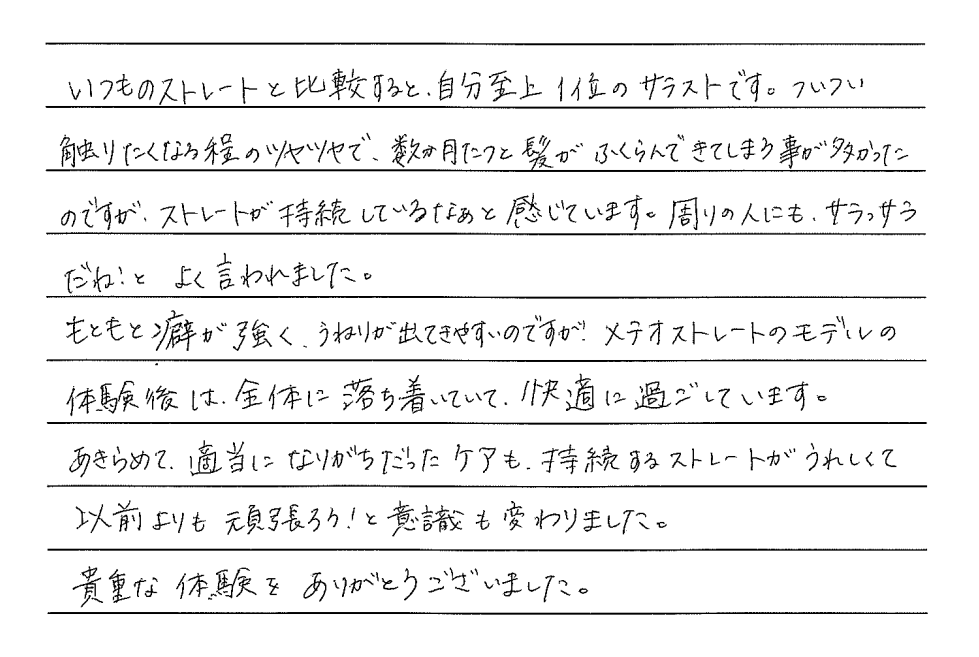 いつものストレートと比較すると、自分至上1位のサラストです。ついつい
触りたくなる程のツヤツヤで、数か月たつと髪がふくらんできてしまう事が多かった
のですが、ストレートが持続しているなぁと感じています。周りの人にも、サラっサラ
だね!とよく言われました。
もともと癖が強く、うねりが出てきやすいのですが、メテオストレートのモデルの
体験後は、全体に落ち着いていて、快適に過ごしています。
あきらめて、適当になりがちだったケアも、持続するストレートがうれしくて
以前よりも頑張ろう!と意識も変わりました。
貴重な体験をありがとうございました。